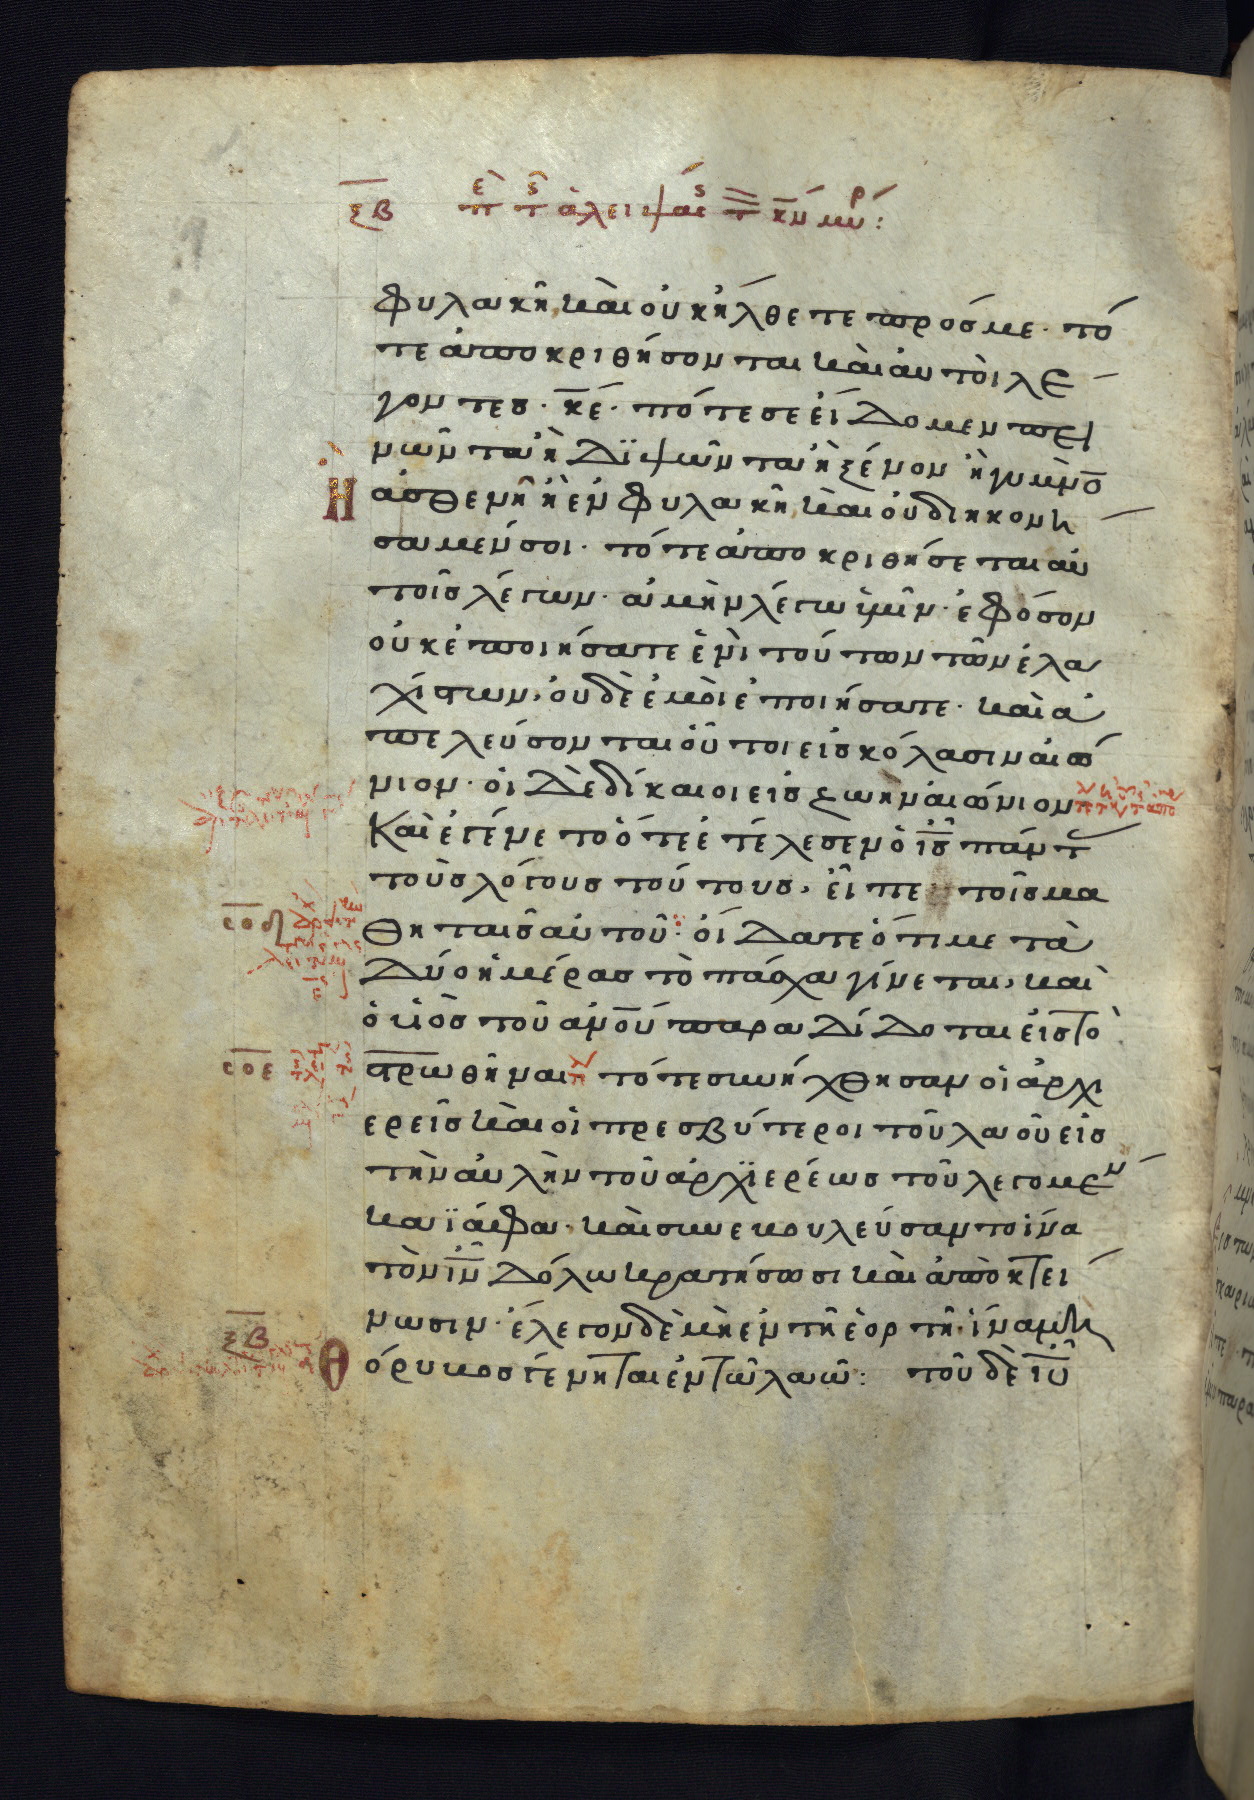 ξβ π̅ε̅ τ̅ς̅ ἀλειψάσ(ης) τ(ὸν) κ̅ν̅ μύρ(ω):
φυλακῆ, καὶ οὐκ ἤλθετε πρός με· τό
τε ἀποκριθήσονται καὶ αὐτοὶ λέ
γοντες· κ̅ε̅· πότε σε εἴδομεν πει
νῶντα ἢ διψῶντα ἢ ξένον ἢ γυμνὸ
ἀσθενῆ ἢ ἐν φυλακῆ, καὶ οὐ διηκονή
σαμέν σοι· τότε ἀποκριθήσεται αὐ
τοῖς λέγων· ἀμὴν λέγω ὑμῖν· ἐφόσον
οὐκ ἐποιήσατε ἑνὶ τούτων τῶν ἐλα
χίστων, οὐδὲ ἐμοὶ ἐποιήσατε· καὶ ἀ
πελεύσονται οὗτοι εἰς κόλασιν αἰώ
νιον· οἱ δὲ δίκαιοι εἰς ζωὴν αἰώνιον
Καὶ ἐγένετο ὅτε ἐτέλεσεν ὁ ι̅ς̅ πάντ
τοὺς λόγους τούτους, εἶπε τοῖς μα
σοδ θηταῖς αὐτοῦ: οἴδατε ὅτι μετὰ
δύο ἡμέρας τὸ πάσχα γίνεται, καὶ
ὁ υἱὸς τοῦ α̅ν̅ο̅υ̅ παραδίδοται εἰς τὸ
σοε σ̅τ̅ρωθῆναι τότε συνήχθησαν οἱ ἀρχι
ερεῖς καὶ οἱ πρεσβύτεροι τοῦ λαοῦ εἰς
τὴν αὐλὴν τοῦ ἀρχϊερέως τοῦ λεγομέν
καϊάφα· καὶ συνεβουλεύσαντο ἵνα
τὸν ι̅ν̅ δόλω κρατήσωσι καὶ ἀποκτεί
νωσιν· ἔλεγον δὲ μὴ ἐν τῆ ἑορτῆ· ἵνα μὴ
ξβ θόρυβος γένηται ἐν τῶ λαῶ: τοῦ δὲ ι̅υ̅